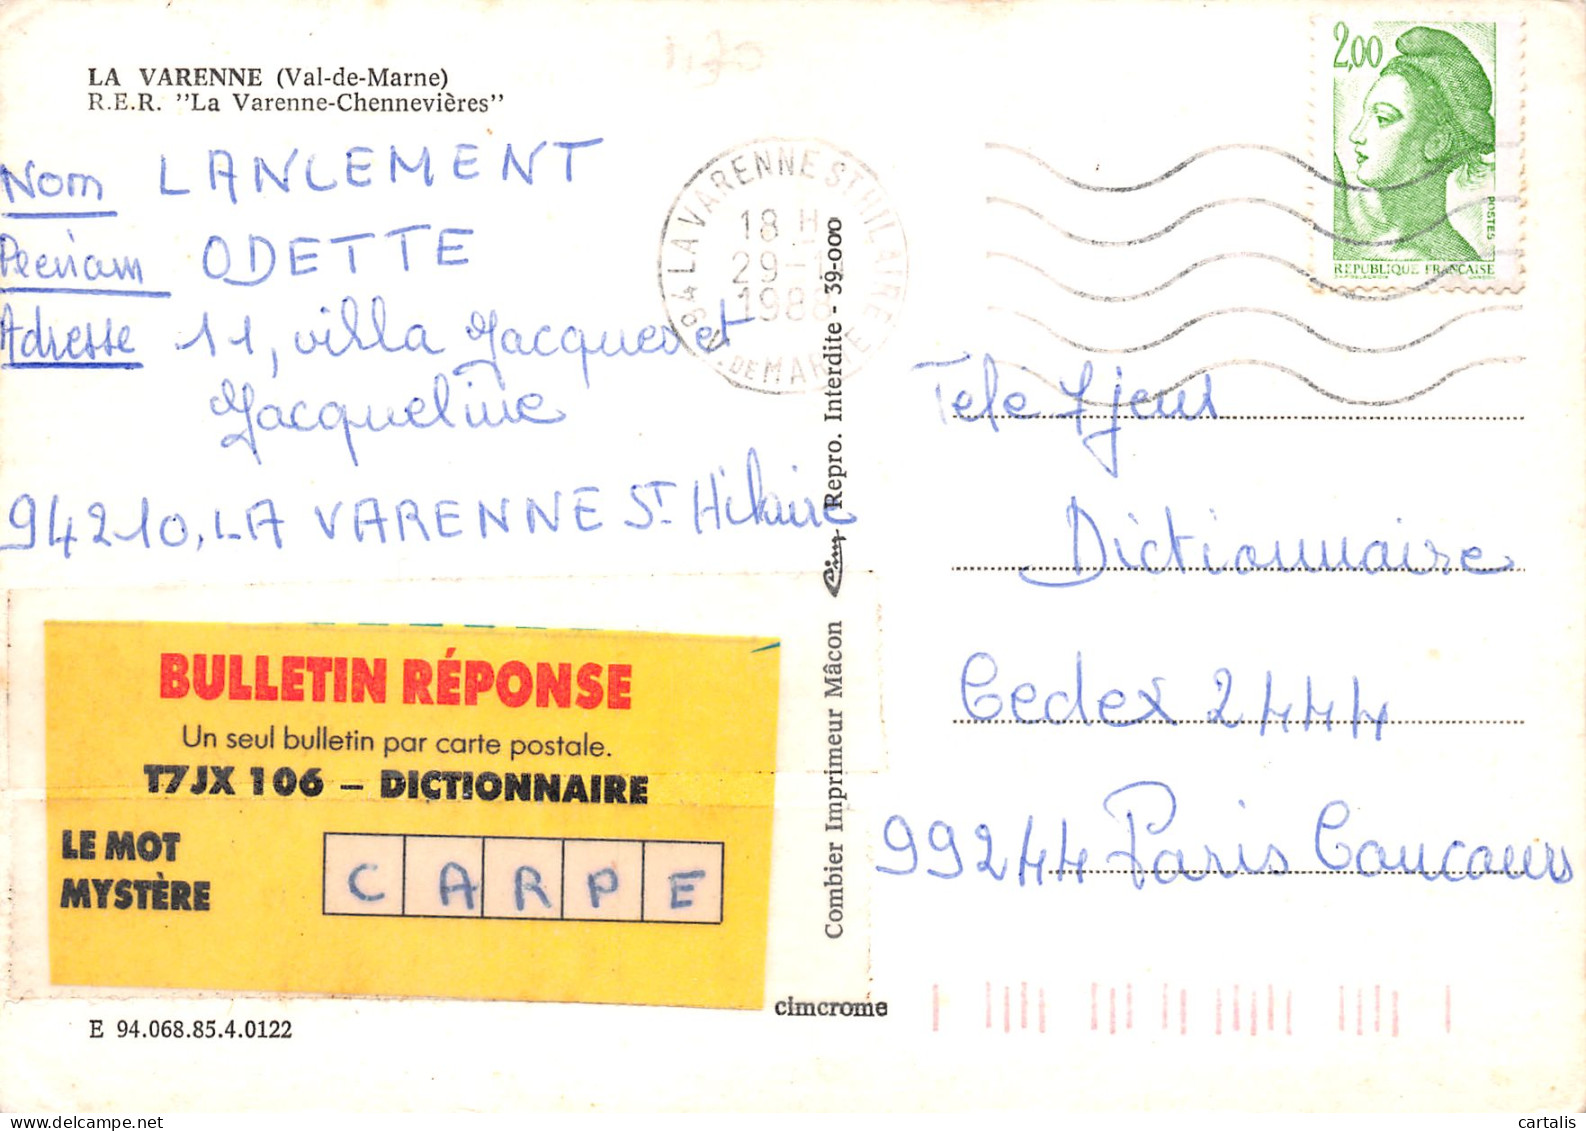 LA VARENNE (Val-de-Marne)
R.E.R. "La Varenne-Chennevières"
Nom LANLEMENT
Prénom ODETTE
Adresse 11, villa Jacqueset
Jacqueline
94210, LA VARENNE St Hilaire
94 LA VARENNE ST HILAIRE
18 H
29-1
1988
V. DE MARNE
2,00
POSTES
REPUBLIQUE FRANÇAISE
Tele 7 jeux
Dictionnaire
Cedex 2444
99244 Paris Concours
BULLETIN RÉPONSE
Un seul bulletin par carte postale.
T7JX 106 – DICTIONNAIRE
LE MOT
MYSTÈRE
C A R P E
Combier Imprimeur Mâcon Cim Repro. Interdite - 39-000
cimcrome
E 94.068.85.4.0122
cartalis